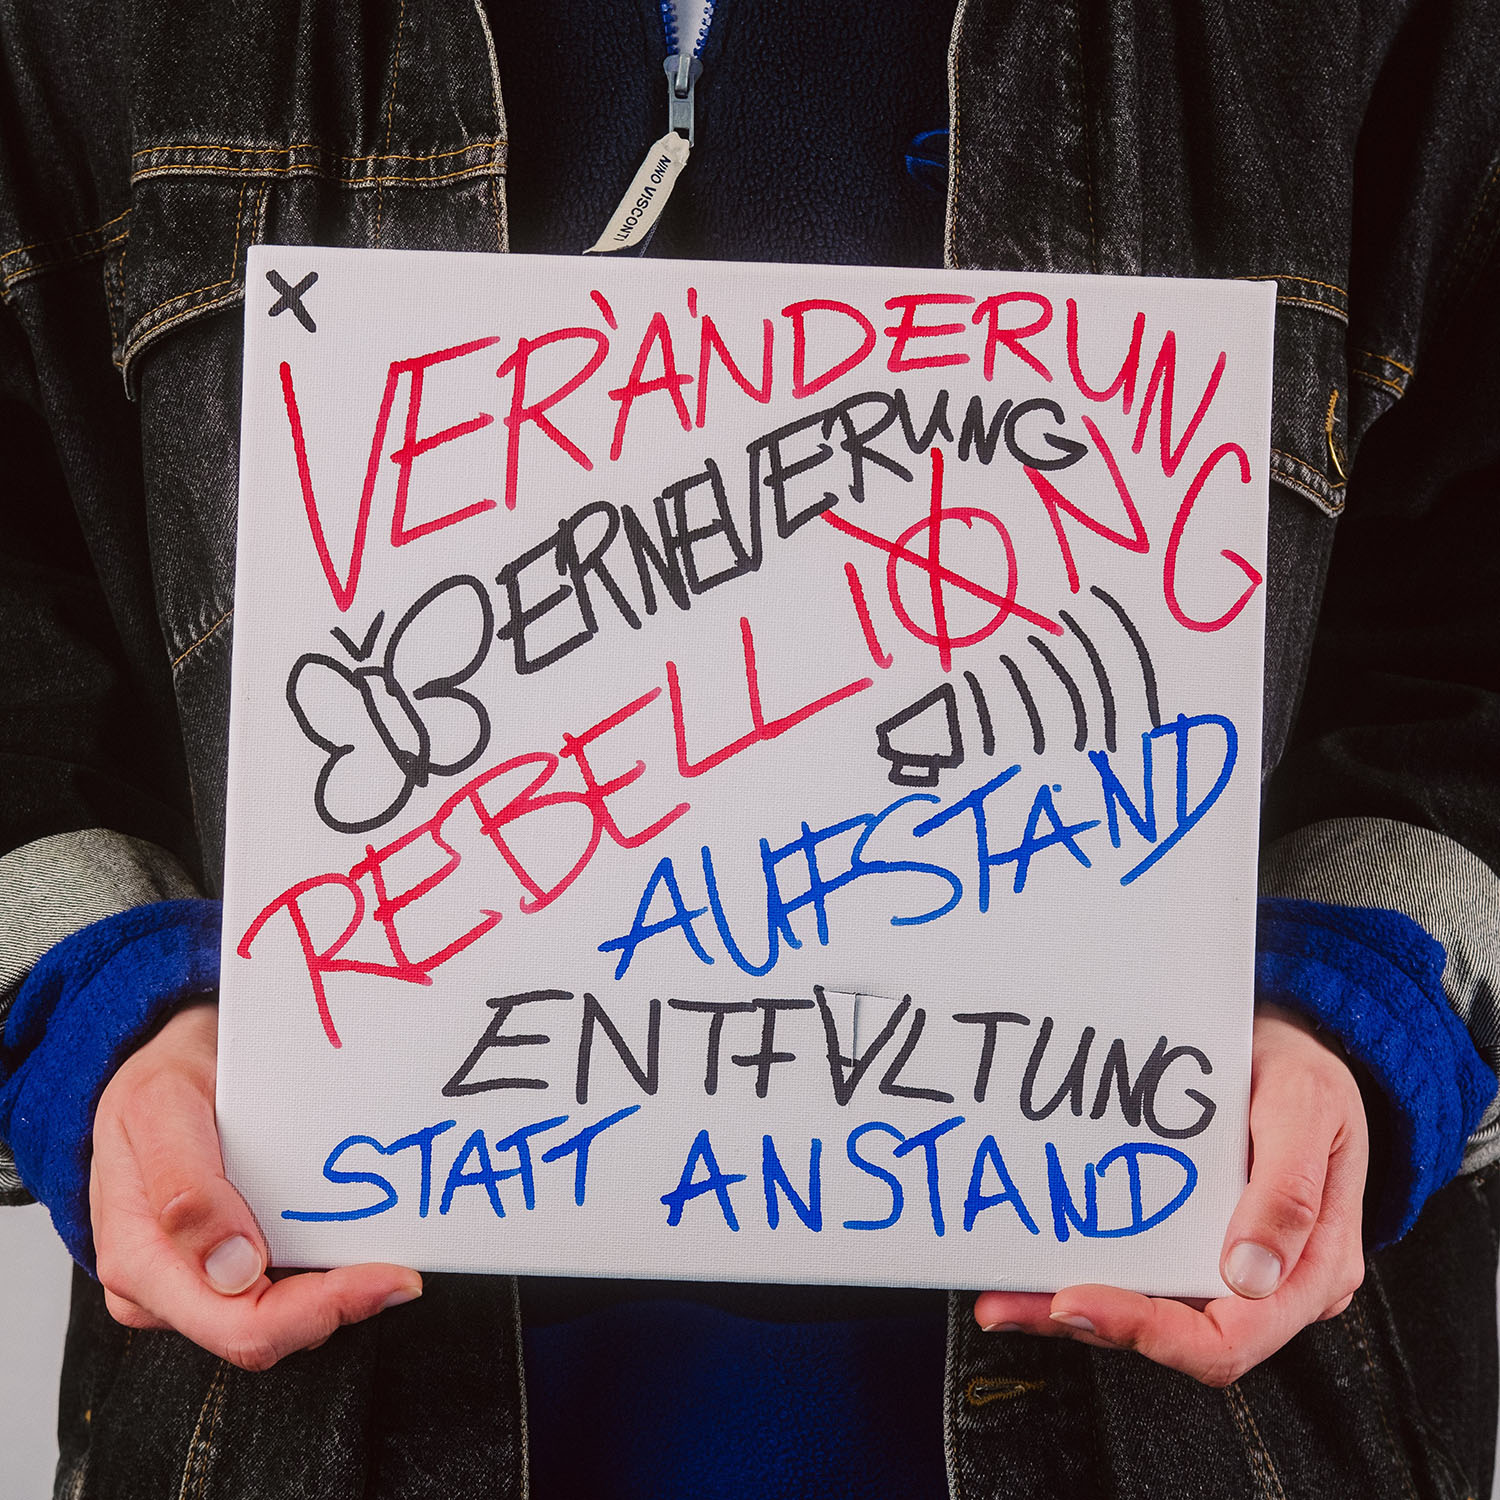 NINO VISCONTI
X
VERÄNDERUNG
ERNEUERUNG
REBELLION
AUFSTAND
ENTFALTUNG
STATT ANSTAND